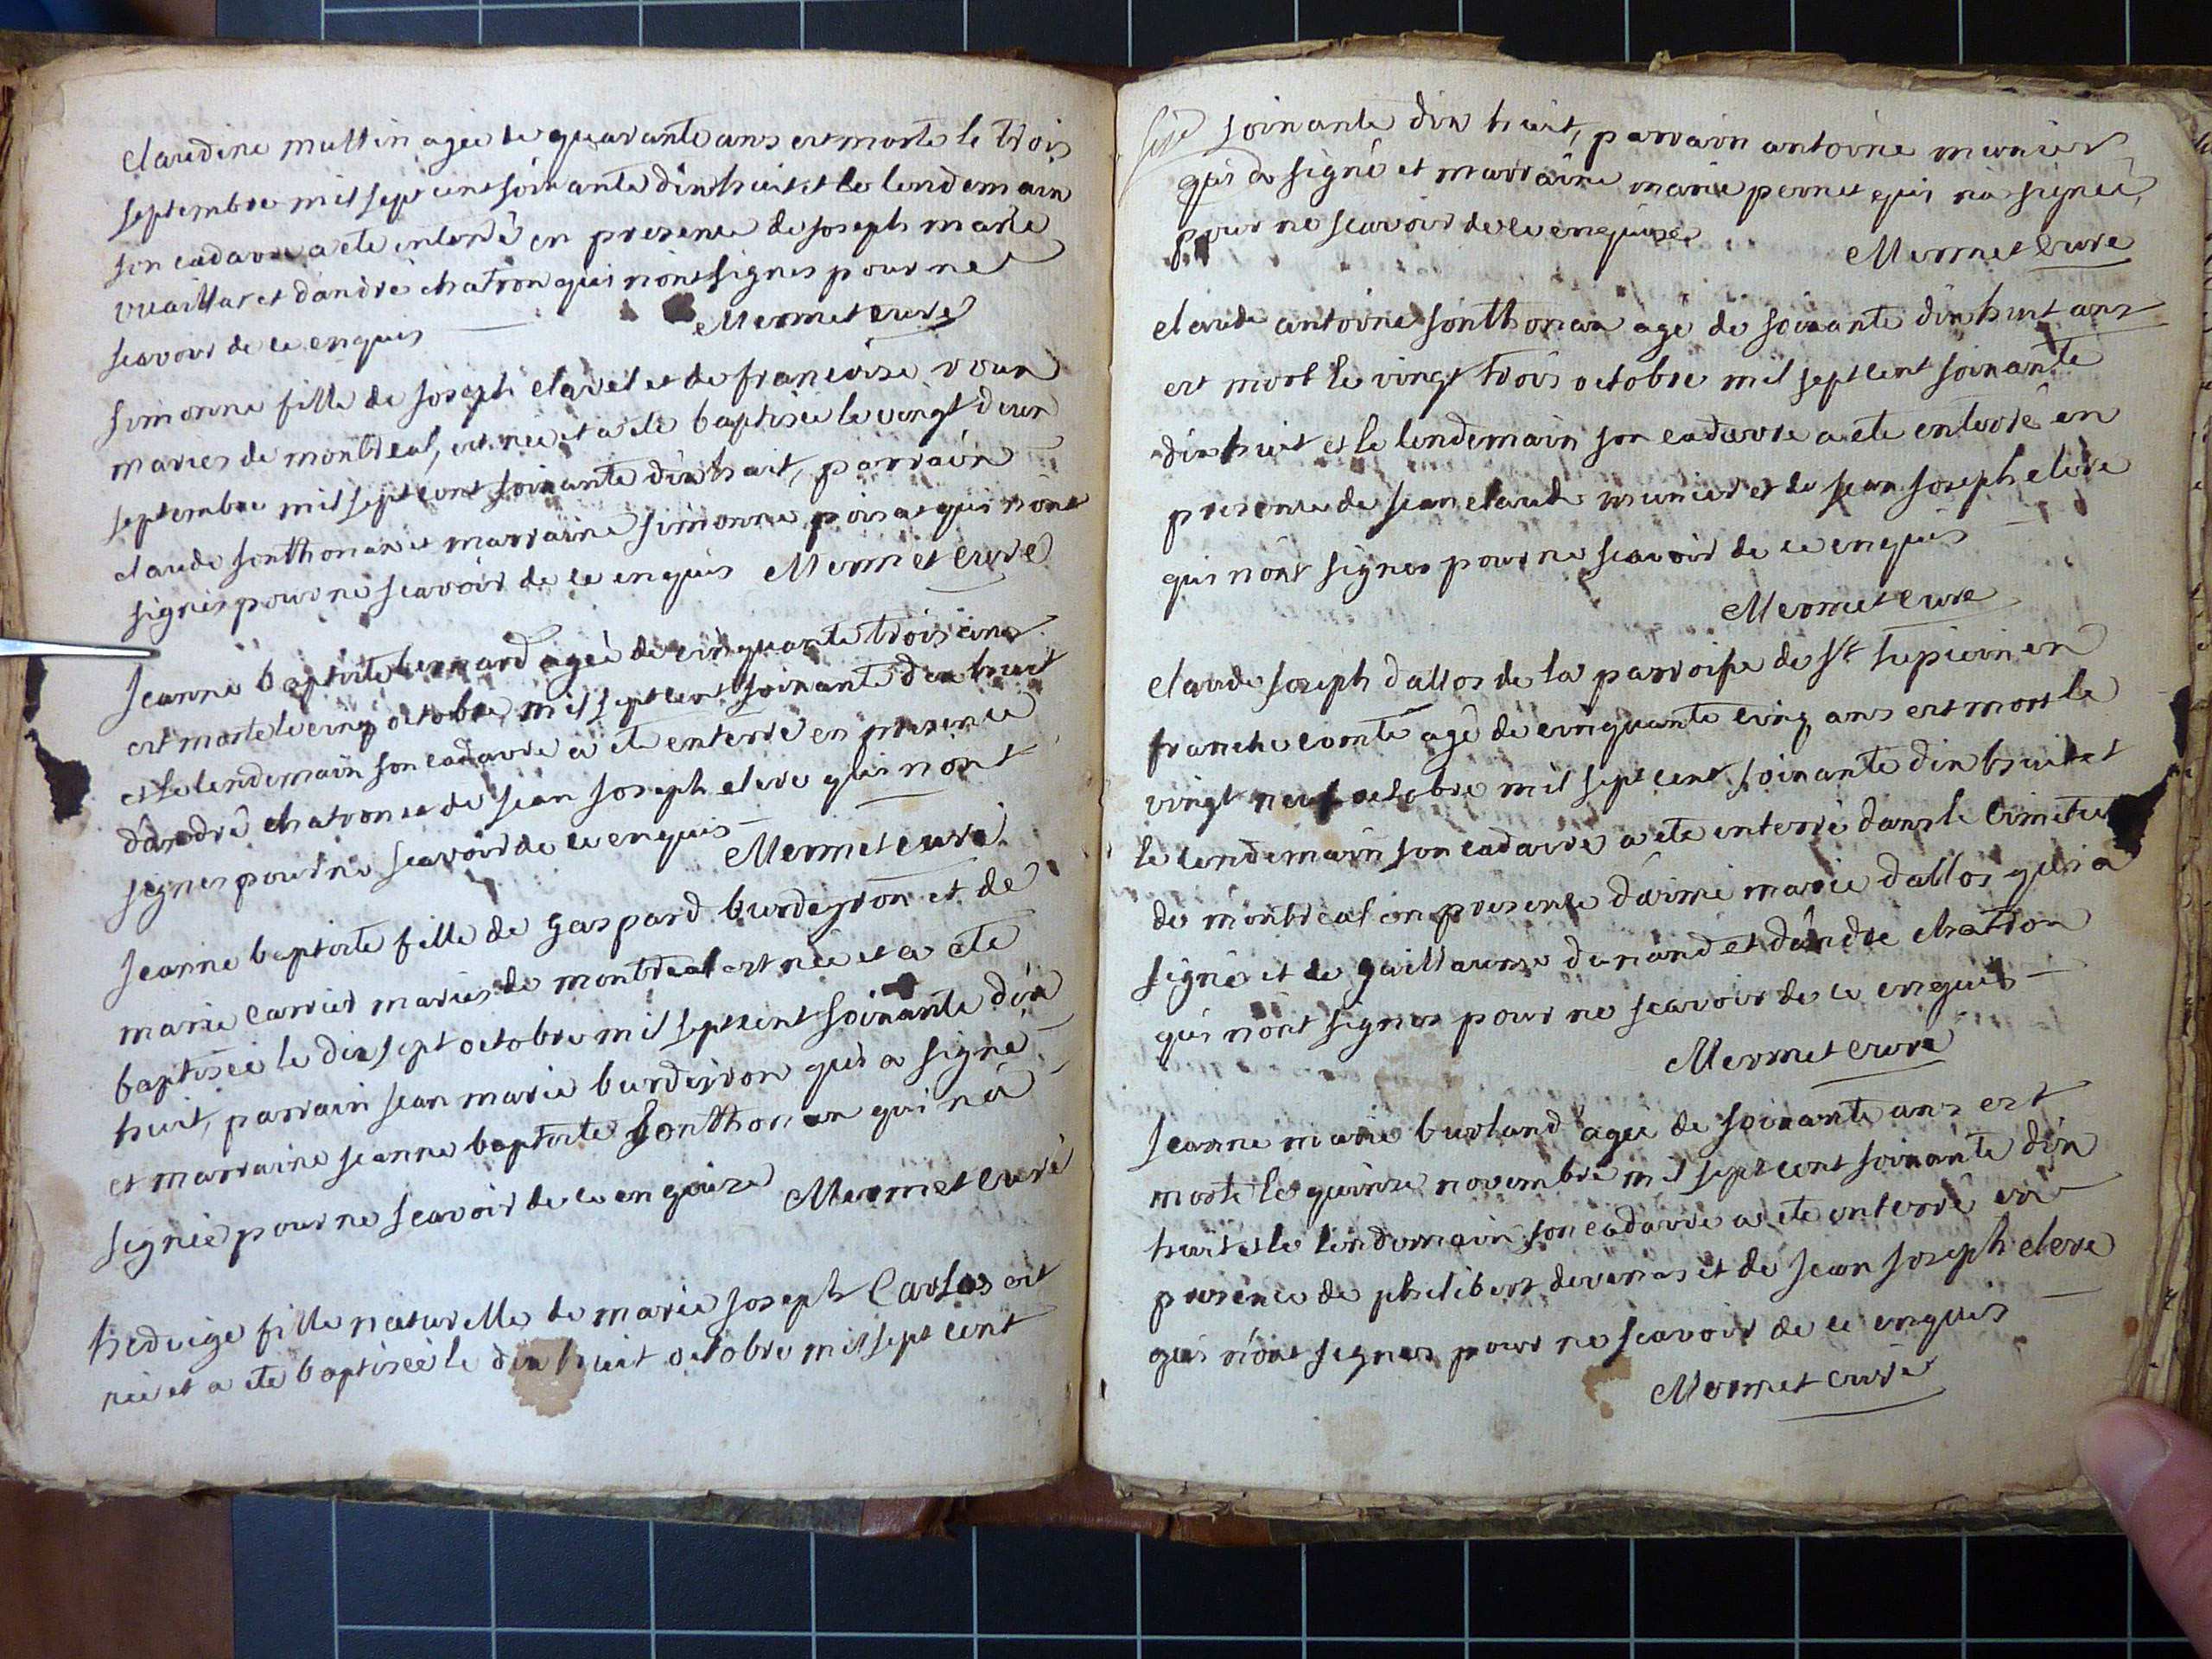 claudine multin agée de quarante ans est morte le trois
septembre mil sept cent soixante dix huit et le lendemain
son cadavre a ete enterré en presence de joseph marie
vuaillat et dandré chatron qui nont signes pour ne
scavoir de ce enquis
Mermet curé
simonne fille de joseph clavel et de francoise roux
maries de montreal, est née et a ete baptisée le vingt deux
septembre mil sept cent soixante dix huit, parrain
claude sonthonax et marraine simonne poisat qui nont
signés pour ne scavoir de ce enquis Mermet curé
jeanne baptiste bernard agée de cinquante trois ans
est morte le cinq octobre mil sept cent soixante dix huit
et le lendemain son cadavre a ete enterré en presence
dandré chatron et de jean joseph clerc qui nont
signes pour ne scavoir de ce enquis
Mermet curé
jeanne baptiste fille de gaspard burdeyron et de
marie carrier maries de montreal est née et a ete
baptisée le dix sept octobre mil sept cent soixante dix
huit, parrain jean marie burdeyron qui a signé
et marraine jeanne baptiste sonthonax qui na
signée pour ne scavoir de ce enquise Mermet curé
hedvige fille naturelle de marie joseph Carlos est
née et a ete baptisée le dix huit octobre mil sept cent
soixante dix huit, parrain antoine munier
qui a signé et marraine marie pernet qui na signée,
pour ne scavoir de ce enquise
Mermet curé
claude antoine sonthonax agé de soixante dix huit ans
est mort le vingt trois octobre mil sept cent soixante
dix huit et le lendemain son cadavre a ete enterré en
presence de jean claude munier et de jean joseph clerc
qui nont signes pour ne scavoir de ce enquis
Mermet curé
claude joseph dallos de la parroisse de st lupicin en
franche comté agé de cinquante cinq ans est mort le
vingt neuf octobre mil sept cent soixante dix huit et
le lendemain son cadavre a ete enterré dans le cimetier
de montreal en presence daimé marie dallos qui a
signé et de guillaume dunand et dandré chatron
qui nont signes pour ne scavoir de ce enquis
Mermet curé
jeanne marie burland agée de soixante ans est
morte le quinze novembre mil sept cent soixante dix
huit et le lendemain son cadavre a ete enterré en
presence de philibert devenas et de jean joseph clerc
qui nont signes pour ne scavoir de ce enquis
Mermet curé